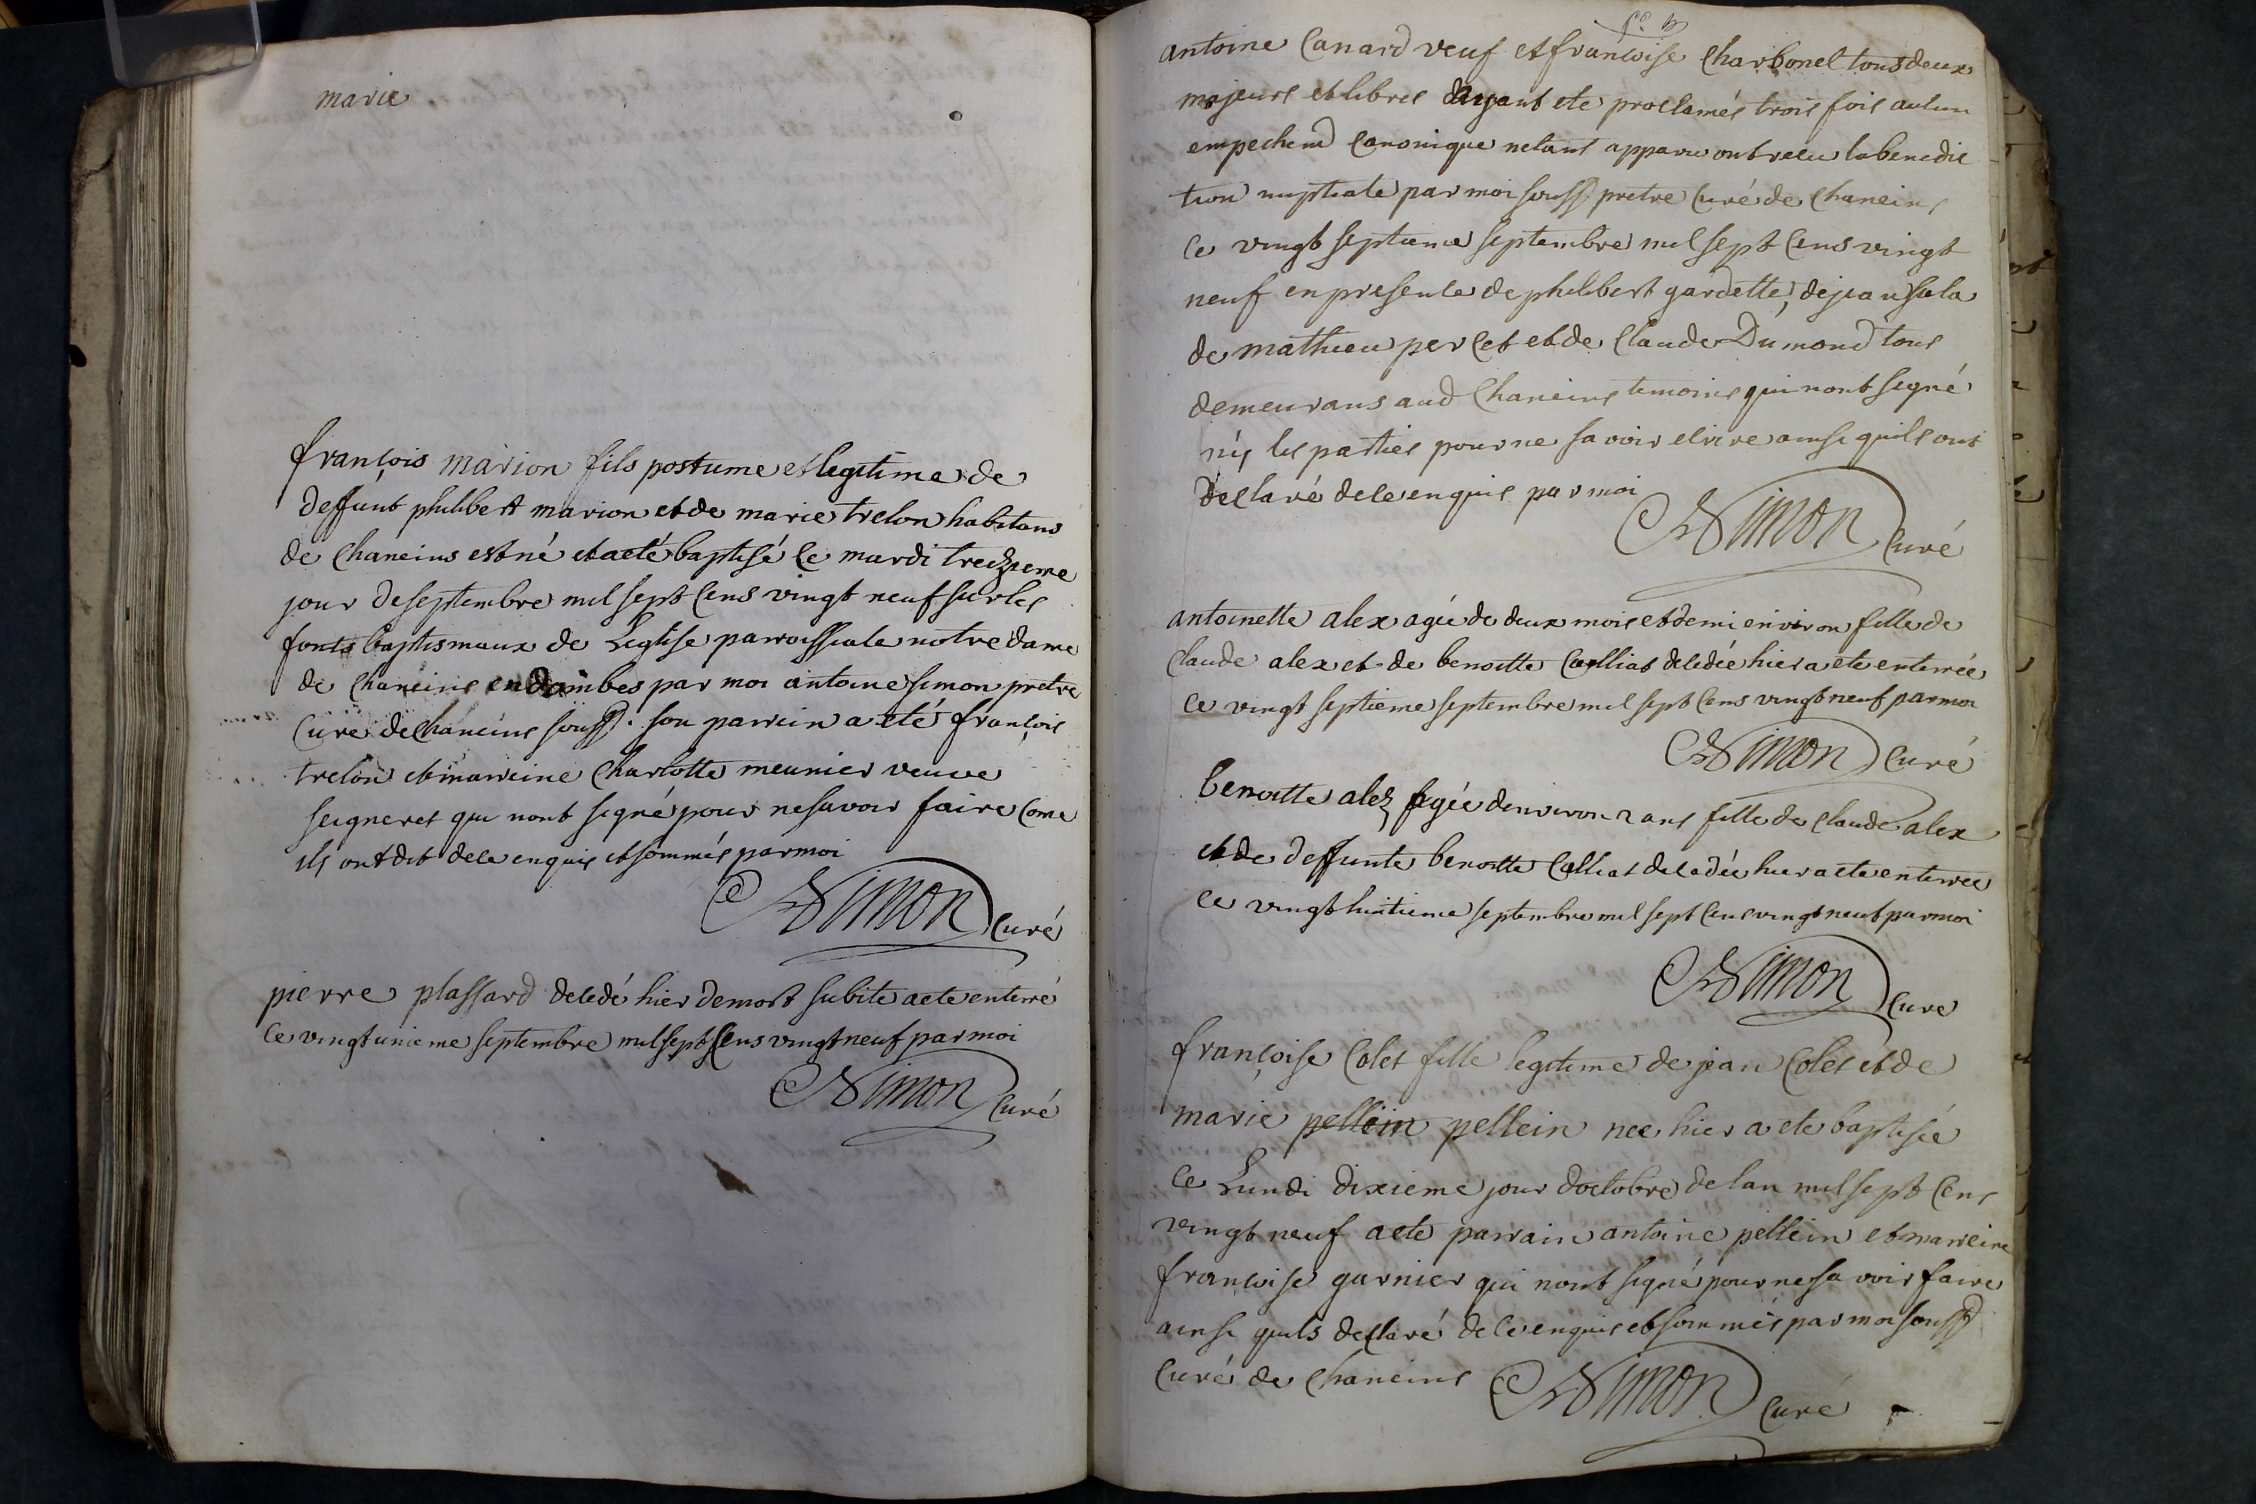 marie
françois marion fils postume et legitime de
deffunt philibert marion et de marie trelon habitans
de chaneins est né et a eté baptisé le mardi treizieme
jour de septembre mil sept cens vingt neuf sur les
fonts baptismaux de Leglise parroissiale notre dame
de chaneins en dombes par moi antoine simon pretre
curé de chaneins soussé. son parrein a eté françois
trelon et marreine charlotte meunier veuve
seigneret qui nont signé pour ne savoir faire come
ils ont dit de ce enquis et sommés par moi
Simon curé
pierre plassard decedé hier de mort subite a ete enterré
ce vingt unieme septembre mil sept cens vingt neuf par moi
Simon curé
antoine Canard veuf et françoise Charbonel tous deux
majeurs et libres ayant ete proclamés trois fois aucun
empechemt canonique netant apparu ont recu la benedic
tion nuptiale par moi soussé pretre curé de chaneins
ce vingt septieme septembre mil sept cens vingt
neuf en presence de philibert gardette, de jean sala
de mathieu percet et de claude Dumond tous
demeurans aud chaneins temoins qui nont signé
niy les parties pour ne savoir ecrire ainsi quils ont
declaré de ce enquis par moi
Simon curé
antoinette alex agée de deux mois et demi environ fille de
claude alex et de benoitte Calliat decedée hier a ete enterrée
ce vingt septieme septembre mil sept cens vingt neuf par moi
Simon curé
benoitte alex agée denviron 2 ans fille de claude alex
et de deffunte benoitte Calliat decedée hier a ete enterrée
ce vingt huitieme septembre mil sept cens vingt neuf par moi
Simon cure
françoise Colet fille legitime de jean Colet et de
marie pellein pellein nee hier a ete baptisée
ce Lundi dixieme jour doctobre de lan mil sept cens
vingt neuf a ete parrain antoine pellein et marreine
françoise garnier qui nont signé pour ne savoir faire
ainsi quils declaré de ce enquis et sommés par moi soussé
curé de chaneins Simon curé